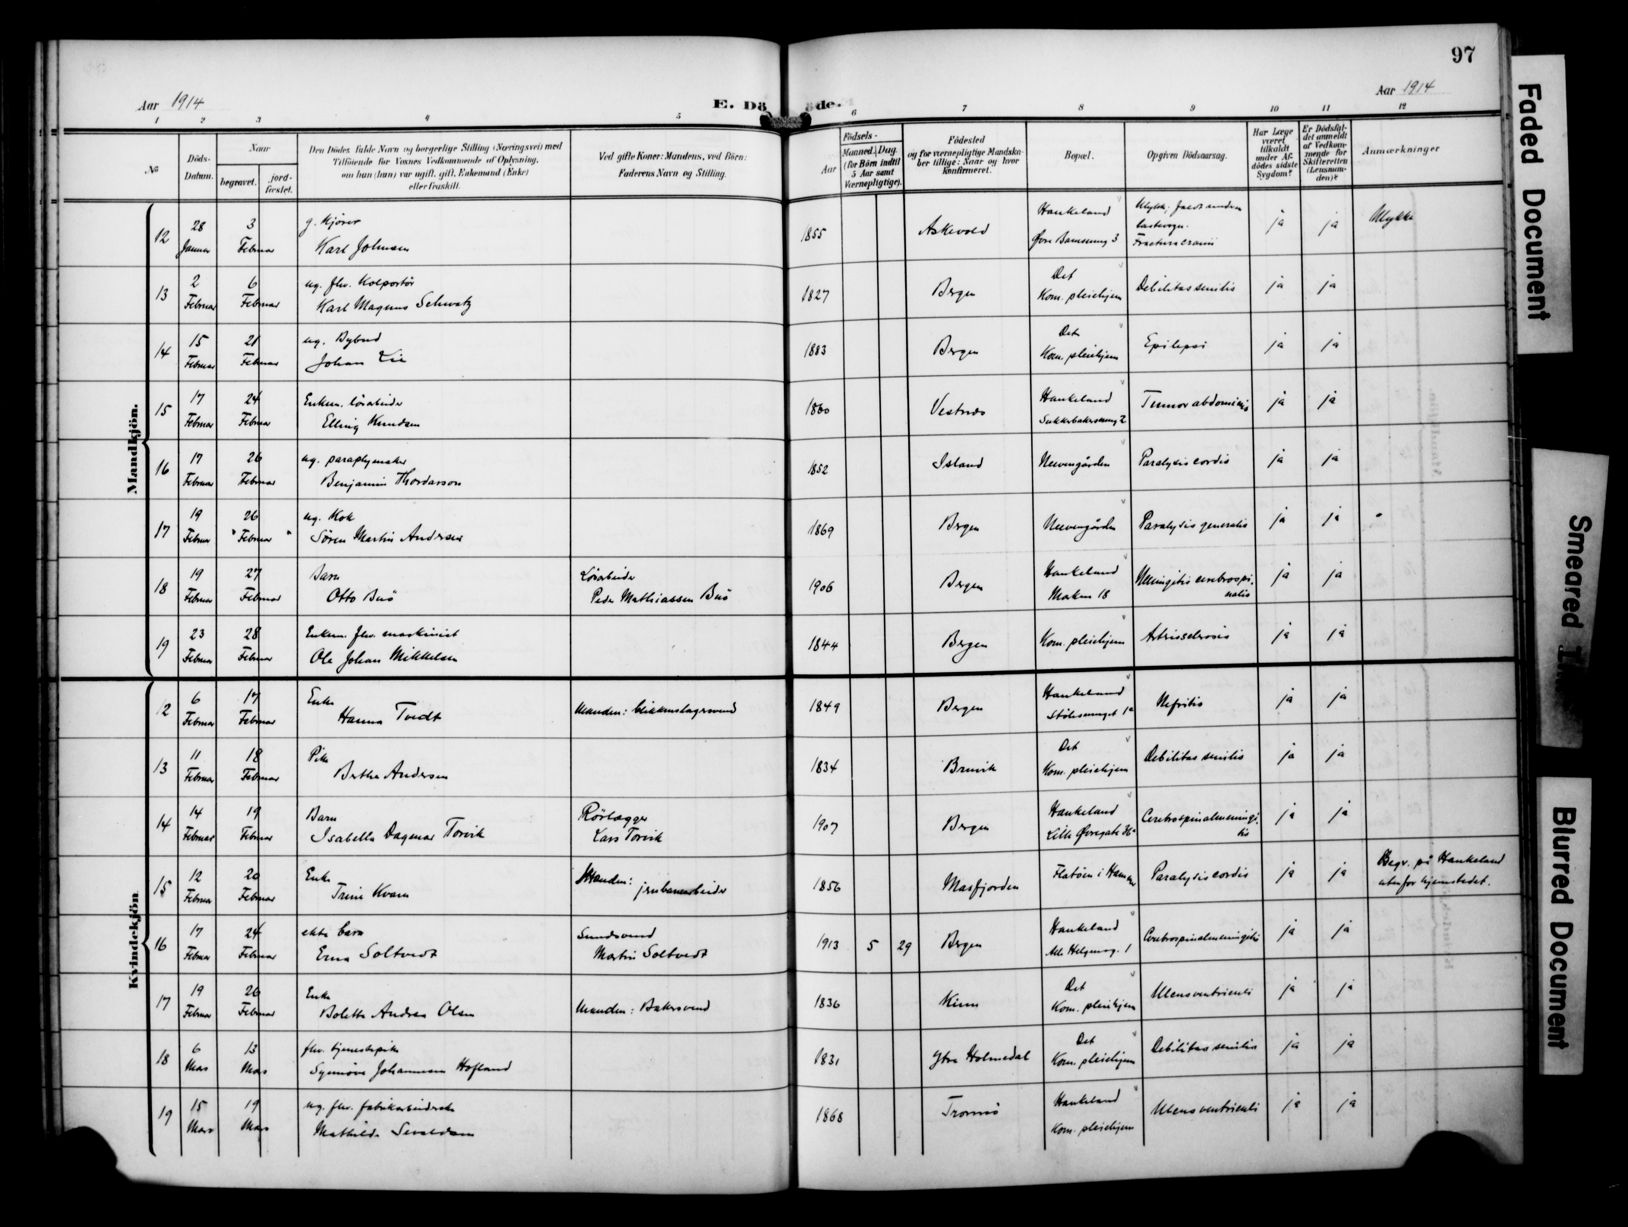 97
Aar 1914
E. Dö
öde.
Aar 1914
1 2 3 4 5 6 7 8 9 10 11 12
No
Döds-Datum.
Naar
begravet.
jord-fæstet.
Den Dödes fulde Navn og borgerlige Stilling (Næringsvei) med
Tilföiende for Voxnes Vedkommende af Oplysning,
om han (hun) var ugift, gift, Enkemand (Enke)
eller fraskilt.
Ved gifte Koner: Mandens, ved Börn:
Faderens Navn og Stilling.
Födsels-
Aar
Maaned. Dag.
(for Börn indtil
5 Aar samt
Værnepligtige).
Födested
og for værnepligtige Mandskaber tillige: Naar og hvor
konfirmeret.
Bopæl.
Opgiven Dödsaarsag.
Har Læge
været
tilkaldt
under Afdödes sidste
Sygdom?
Er Dödsfaldet anmeldt
af Vedkommende for
Skifteretten
(Lensmanden)?
Anmærkninger
Mandkjön.
12 28 Januar 3 Februar g. Kjører Karl Johnsen 1855 Askevold Haukeland Øvre 3 Fractura cranii ja ja Ulykke
13 2 Februar 6 Februar ug. fhv. Kolportør Karl Magnus Schwatz 1827 Bergen Det Kom. pleiehjem Debilitas senilis ja ja
14 15 Februar 21 Februar ug. Bybud Johan Lie 1883 Bergen Det Kom. pleiehjem Epilepsi ja ja
15 17 Februar 24 Februar Enkem. løsarbeider Elling Knudsen 1860 Vestnes Haukeland 2 Tumor abdominis ja ja
16 17 Februar 26 Februar ug. paraplymaker Benjamin Thordarson 1852 Island Neevengården Paralysis cordis ja ja
17 19 Februar 26 Februar ug. Kok Søren Martin Andersen 1869 Bergen Neevengården Paralysis generalis ja ja
18 19 Februar 27 Februar Barn Otto Buö Løsarbeider Peder Mathiassen Buö 1906 Bergen Haukeland Marken 18 Meningitis cerebrospinalis ja ja
19 23 Februar 28 Februar Enkem. fhv. maskinist Ole Johan Mikkelsen 1844 Bergen Kom. pleiehjem ja ja
Kvindekjön
12 6 Februar 17 Februar Enke Hanna Tvedt Manden: blikkenslagersvend 1849 Bergen Haukeland Nefritis ja ja
13 11 Februar 18 Februar Pike Berthe Andersen 1834 Bruvik Det Kom. pleiehjem Debilitas senilis ja ja
14 14 Februar 19 Februar Barn Isabella Dagmar Torvik Rörlægger Lars Torvik 1907 Bergen Haukeland Lille Øvregate Cerebrospinalmeningitis ja ja
15 12 Februar 20 Februar Enke Trine Kvam Manden: jernbanearbeider 1856 Masfjorden Flatøen i Hammer Paralysis cordis ja ja Begr. på Haukeland utenfor hjemstedet.
16 17 Februar 24 Februar ekte barn Erna Soltvedt Martin Soltvedt 1913 5 29 Bergen Haukeland 1 Cerebrospinalmeningitis ja ja
17 19 Februar 26 Februar Enke Bolette Andrea Olsen Manden: Bakersvend 1836 Kinn Det Kom. pleiehjem Ulcus ventriculi ja ja
18 6 Mars 13 Mars fhv. tjenestepike Synnöve Johannesen Hofland 1831 Ytre Holmedal Det Kom. pleiehjem Debilitas senilis ja ja
19 15 Mars 19 Mars ug. fhv. fabrikarbeiderske Mathilde 1868 Tromsö Haukeland Kom. pleiehjem Ulcus ventriculi ja ja
Faded Document
Smeared
Blurred Document